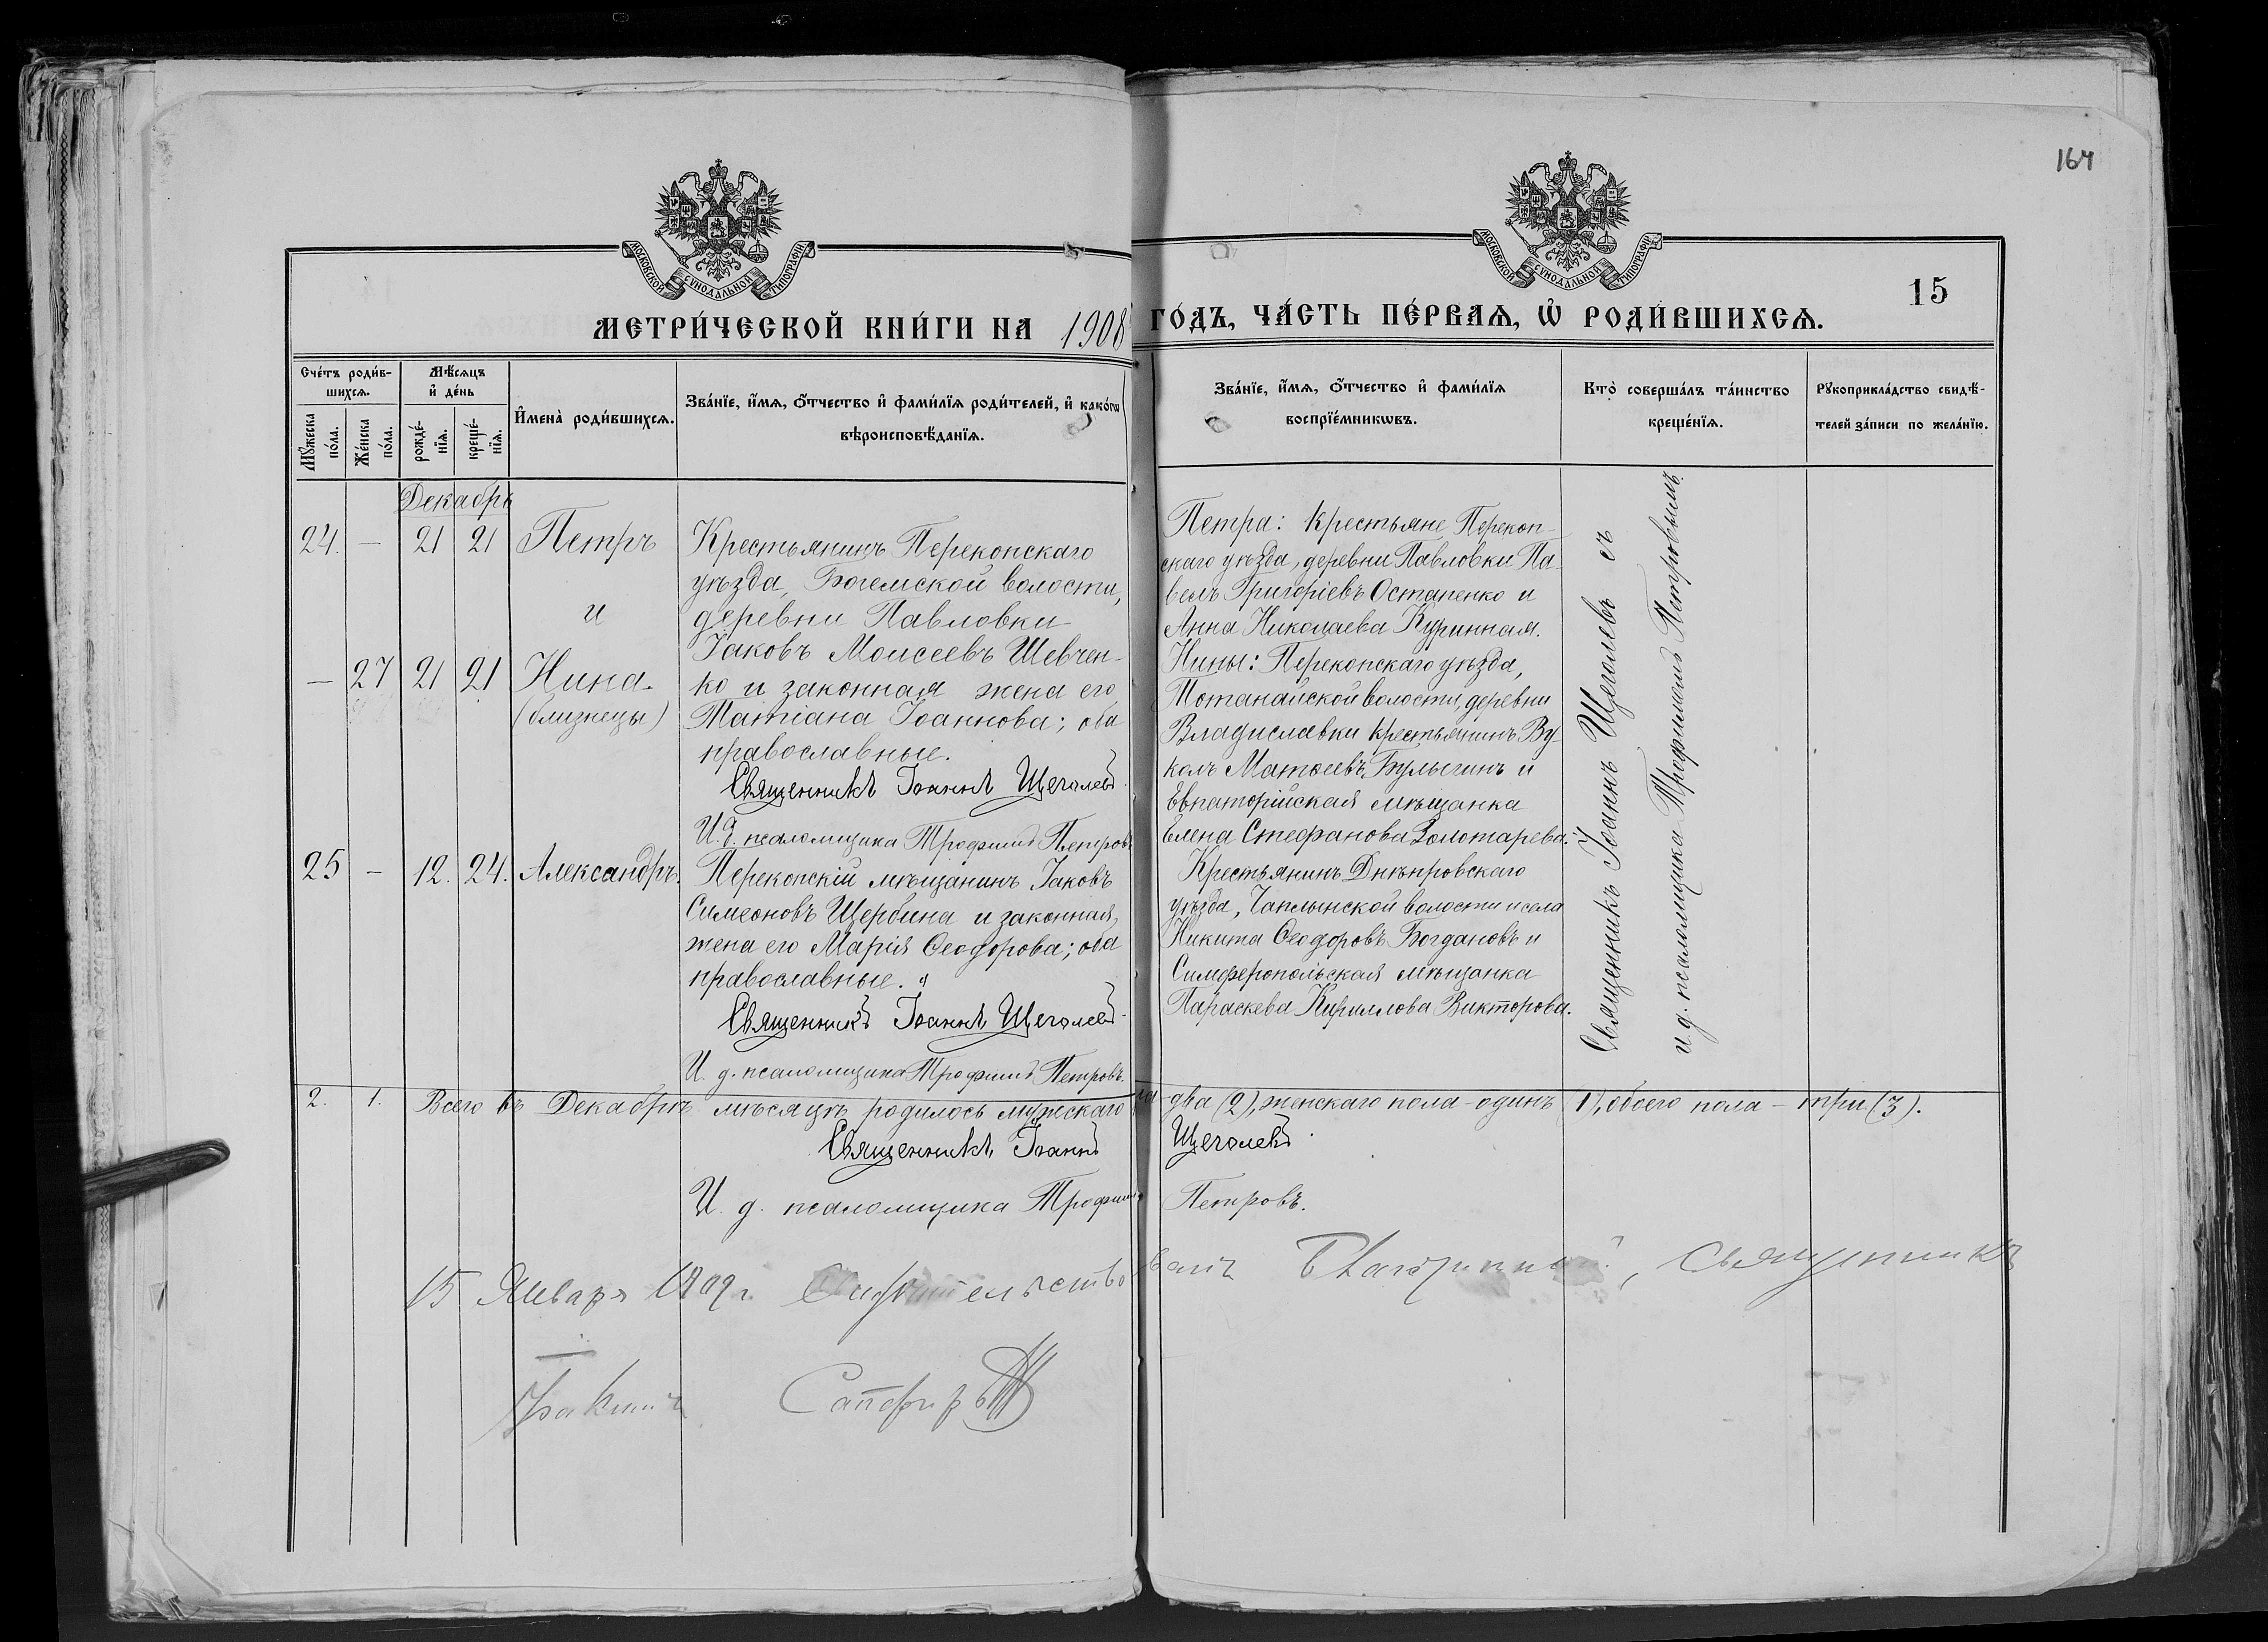 164
МОСКОВСКОЙ СУНОДАЛЬНОЙ ТИПОГРАФІИ
МОСКОВСКОЙ СУНОДАЛЬНОЙ ТИПОГРАФІИ
15
МЕТРИ́ЧЕСКОЙ КНИ́ГИ НА 1908 ГО́ДЪ, ЧА́СТЬ ПЕ́РВАѦ, Ѡ҆ РОДИ́ВШИХСѦ.
Сче́тъ роди́в-
шихсѧ.
Мꙋ́жеска
по́ла.
Же́нска
по́ла.
Мѣ́сѧцъ
и҆ де́нь
рожде́-
нїѧ.
креще́-
нїѧ.
И҆мена̀ роди́вшихсѧ.
Зва́нїе, и҆́мѧ, ѻ҆́тчество и҆ фами́лїѧ роди́телей, и҆ како́гѡ
вѣроисповѣ́данїѧ.
Зва́нїе, и҆́мѧ, ѻ҆́тчество и҆ фами́лїѧ
воспрїе́мникѡвъ.
Кто̀ соверша́лъ та́инство
креще́нїѧ.
Рꙋкоприкла́дство свидѣ́-
телей за́писи по жела́нїю.
Декабрь
24. — 21 21 Петръ
и
— 27 21 21 Нина.
(близнецы)
Крестьянинъ Перекопскаго
уѣзда, Богемской волости,
деревни Павловки
Іаковъ Моисеевъ Шевчен-
ко и законная жена его
Татіана Іоаннова; оба
православные.
Священникъ Іоаннъ Щеголевъ
И. д. псаломщика Трофимъ Петровъ
Петра: Крестьяне Перекоп-
скаго уѣзда, деревни Павловки Па-
велъ Григоріевъ Остапенко и
Анна Николаева Куринная.
Нины: Перекопскаго уѣзда,
волости, деревни
Владиславки крестьянинъ Ву-
колъ Матѳеевъ Булыгинъ и
Евпаторійская мѣщанка
Елена Стефанова Золотарева.
Священникъ Іоаннъ Щеголевъ съ
и. д. псаломщика Трофимомъ Петровымъ
25 — 12. 24. Александръ.
Перекопскій мѣщанинъ Іаковъ
Симеоновъ Щербина и законная
жена его Марія Ѳеодорова; оба
православные.
Священникъ Іоаннъ Щеголевъ
И. д. псаломщика Трофимъ Петровъ.
Крестьянинъ Днѣпровскаго
уѣзда, Чаплынской волости и села
Никита Ѳеодоровъ Богдановъ и
Симферопольская мѣщанка
Параскева Кириллова Викторова.
2. 1. Всего въ Декабрѣ мѣсяцѣ родилось мужескаго два (2), женскаго пола – одинъ 1), обоего пола – три (3).
Священникъ Іоаннъ Щеголевъ.
И. д. псаломщика Трофимъ Петровъ.
15 Января 1909 г. Свидѣтельствовалъ Благочинный, Священникъ
Сапфиръ